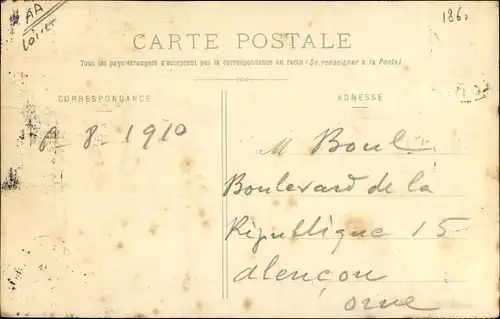 AA
Loiret
1860
CARTE POSTALE
Tous les pays étrangers n'acceptent pas la correspondance au recto (Se renseigner à la Poste)
CORRESPONDANCE
ADRESSE
8 1910
M Boul
Boulevard de la
République 15
Alençon
Orne